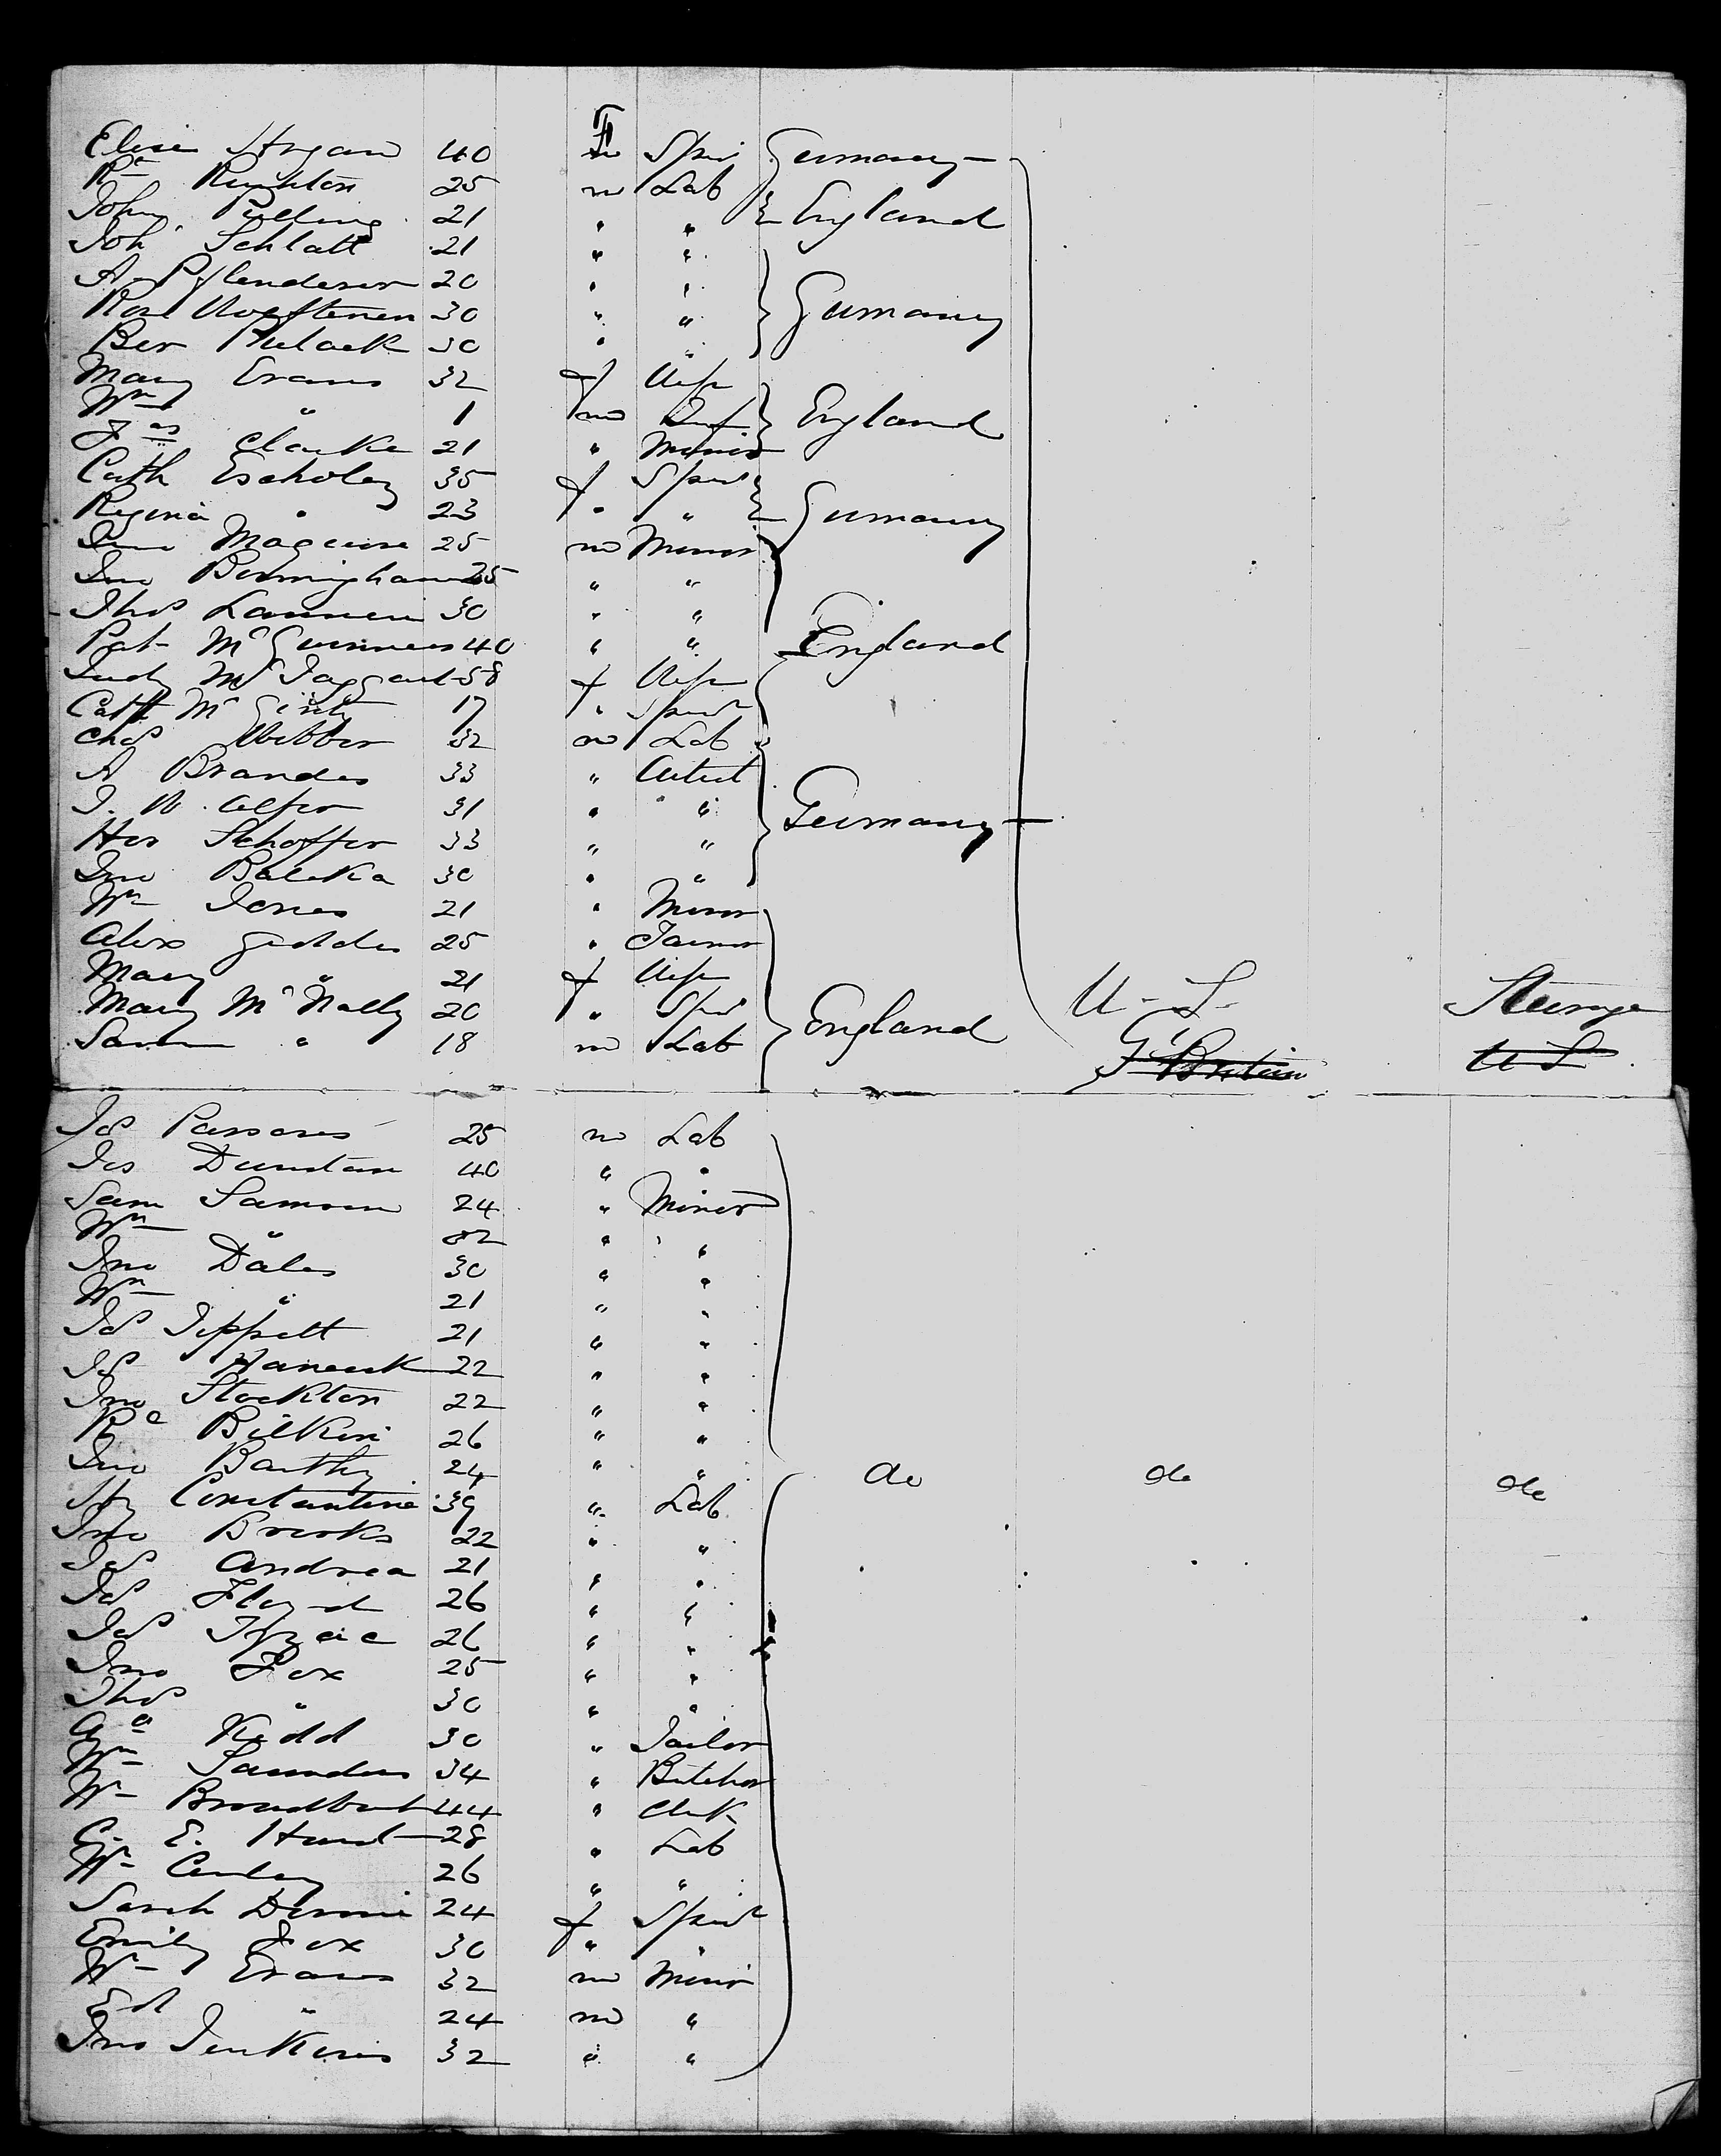 Elise 40 F Spin Germany
Rd Rushton 25 m Lab
John Pilling 21 " " England
Joh Schlatt 21 " "
A 20 " "
30 " " Germany
Ber 30 " "
Mary Evans 32 f Wife
Wm " 1 m Inf England
Jas Clarke 21 " Miner
Cath Escholey 35 f Spin
Regina " 23 " " Germany
Jno Maguire 25 m Miner
Jno Bermingham 25 " "
Thos Lannen 30 " "
Pat McGuinness 40 " " England
Judy McTaggart 58 f Wife
Cath McGinty 17 " Spinst
Chas Webber 32 m Lab
A Brandes 33 " Artist
J. W. 31 " " Germany
Her Schoffer 33 " "
Jno Baleka 30 " "
Wm Jones 21 " Miner
Alex Geddes 25 " Farmer
Mary " 21 f Wife
Mary McNally 20 " Spin England U. S. Steerage
Sam " 18 m Lab G Britain U S
Js Parsons 25 m Lab
Jas Dunstan 40 " "
Sam Samson 24 " Miner
Wm " 32 " "
Jno Dales 30 " "
Wm " 21 " "
Js Tippett 21 " "
Js Hancock 22 " "
Jno Stockton 22 " "
Rd Bilkin 26 " "
Jno Barthy 24 " " do do do
Hy Constantine 39 " Lab
Jno Brooks 22 " "
Js Andrea 21 " "
Js Floyd 26 " "
Js 26 " "
Jno Fox 25 " "
Thos " 30 " "
Kidd 30 " Tailor
Wm Saunders 34 " Butcher
Wm Broadbent 44 " Clerk
C. E. Hand 28 " Lab
Wm 26 " "
Sarah 24 f Spinst
Emily Fox 30 " "
Wm Evans 32 m Miner
Ed " 24 m "
Jno Jenkins 32 " "